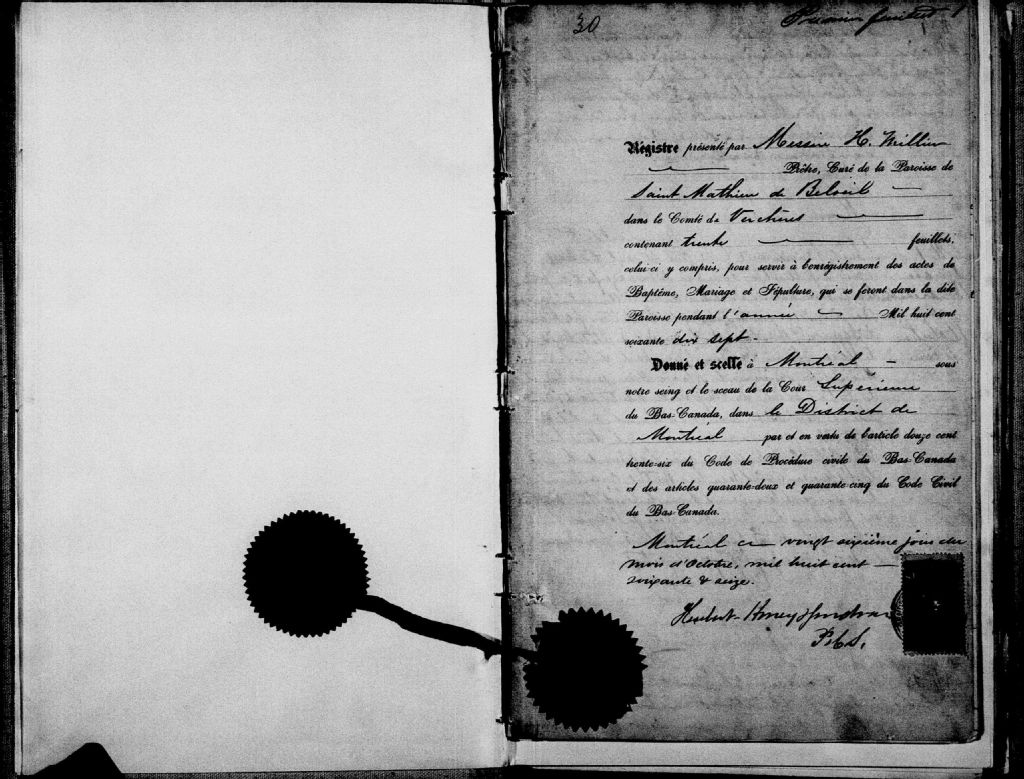 30
Premier feuillet 1
Régistre présenté par Messire H. Millier
Prêtre, Curé de la Paroisse de
Saint Mathieu de Beloeil
dans le Comté de Verchères
contenant trente feuillets,
celui-ci y compris, pour servir à l'enrégistrement des actes de
Baptême, Mariage et Sépulture, qui se feront dans la dite
Paroisse pendant l'année Mil huit cent
soixante dix sept.
Donné et scellé à Montréal sous
notre seing et le sceau de la Cour Supérieure
du Bas-Canada, dans le District de
Montréal par et en vertu de l'article douze cent
trente-six du Code de Procédure civile du Bas-Canada
et des articles quarante-deux et quarante-cinq du Code Civil
du Bas-Canada.
Montréal ce vingt sixième jour du
mois d'Octobre, mil huit cent
soixante & seize.
P.C.S.